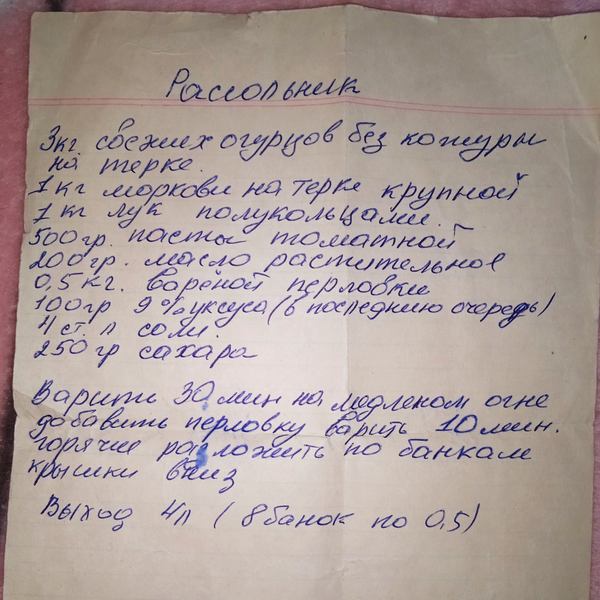 Рассольник
3кг. свежих огурцов без кожуры
на терке.
1кг моркови на терке крупной
1кг лук полукольцами.
500гр. пасты томатной
200гр. масло растительное
0,5кг. варёной перловки
100гр 9% уксуса (в последнию очередь)
4 ст. л соли.
250гр сахара
Варить 30 мин на медленом огне
добавить перловку варить 10 мин.
горячие разложить по банкам
крышки вниз
Выход 4л (8 банок по 0,5)